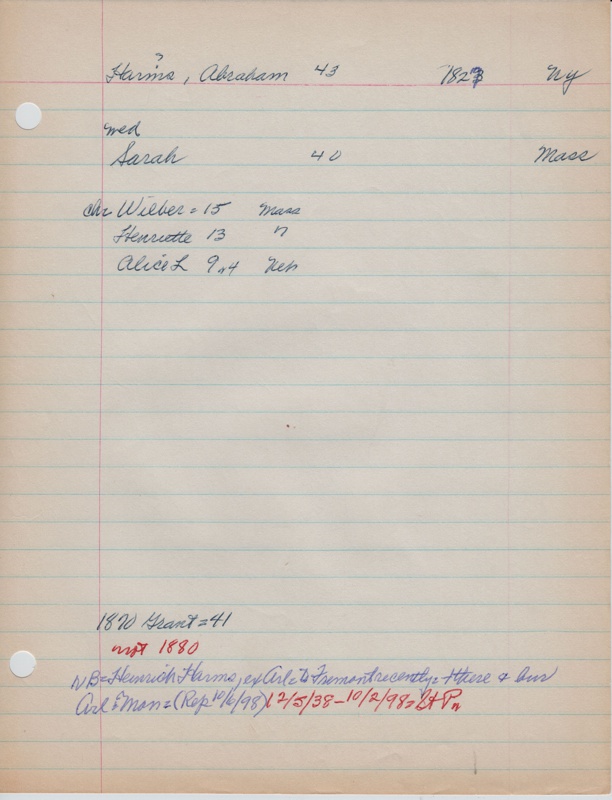 ?
Harms, Abraham 43 1827 NY
wed
Sarah 40 Mass
ch Wilber = 15 Mass
Henriette 13 "
Alice L 9 Neb
1870 Grant = 41
not 1880
NB = Heinrich Harms, ex Arl to Fremont recently = there & bur
Arl Mon = (Rep 10/6/98) 12/5/38 - 10/2/98 =